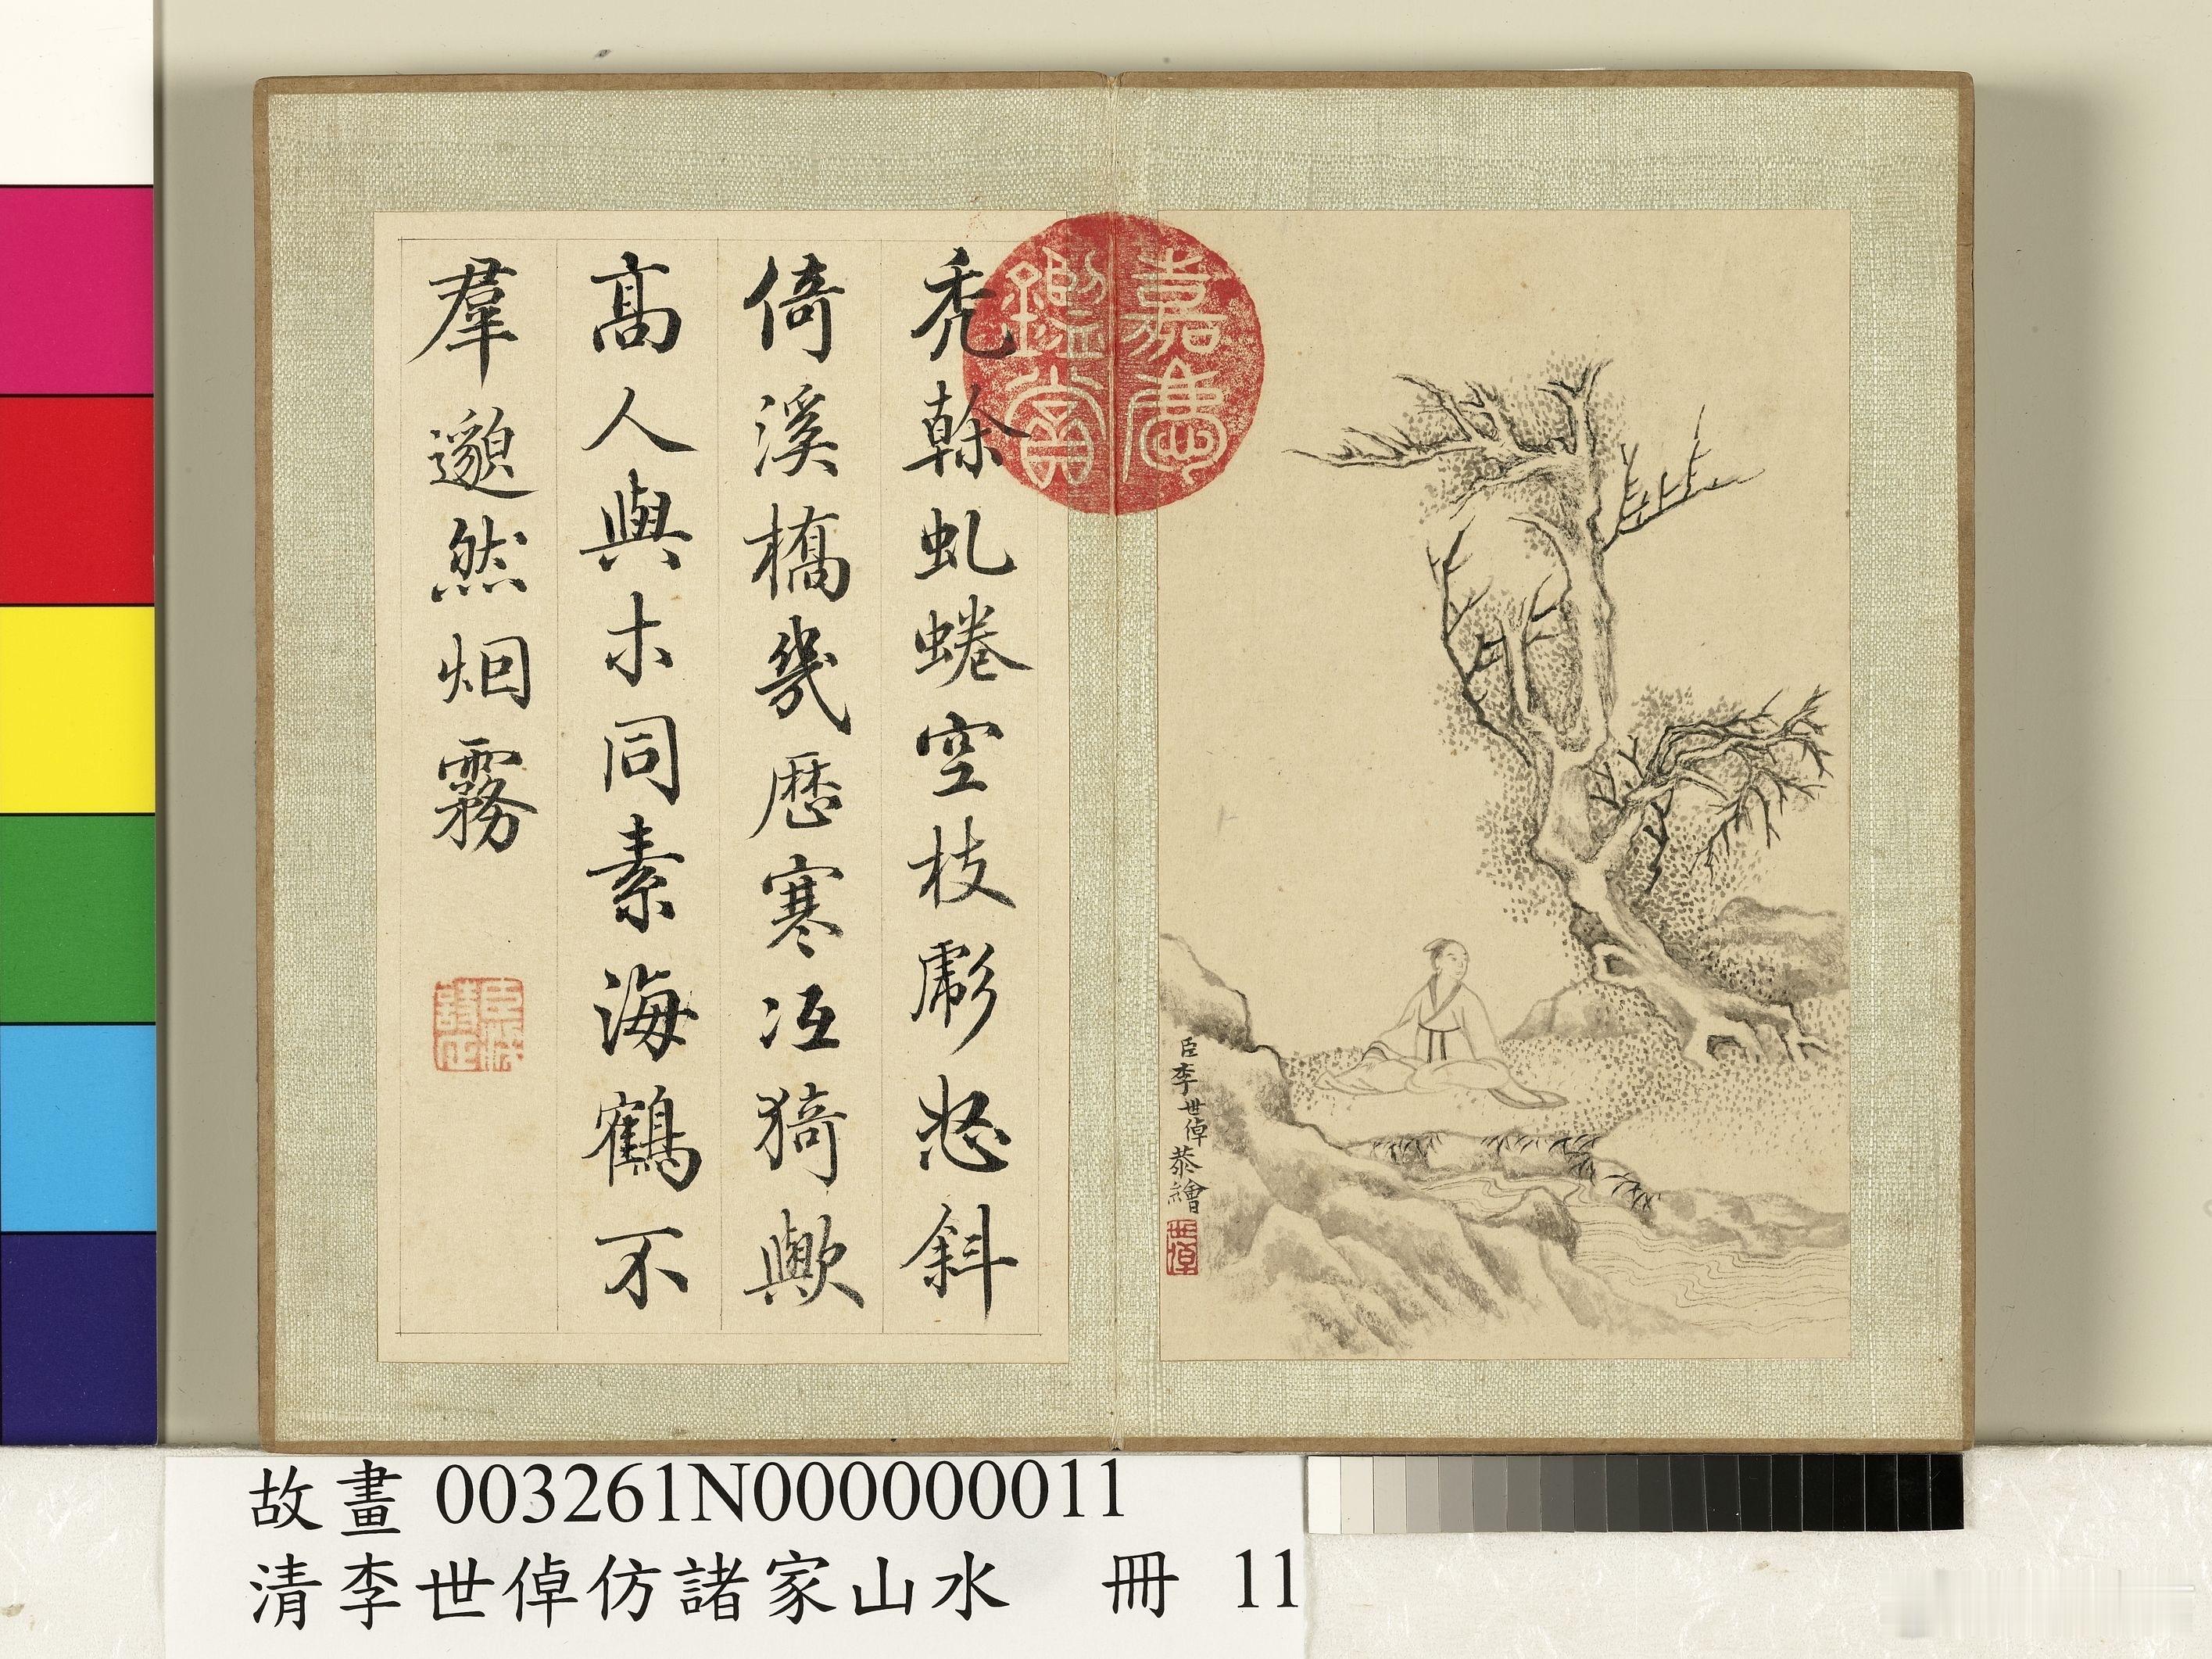 嘉慶
鑑賞
臣李世倬恭繪
世倬
秃榦虬蜷空枝彪怒斜
倚溪橋幾厯寒冱猗歟
髙人與木同素海鶴不
羣邈然烟霧
臣梁
詩正
故畫 003261N000000011
清李世倬仿諸家山水 冊 11